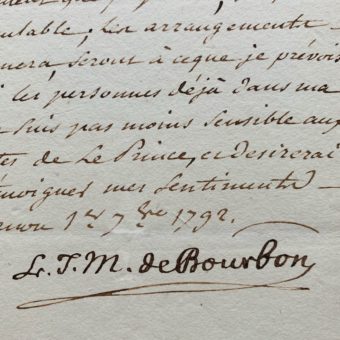 que
; les arrangements
nera seront à ceque je prévois
les personnes déjà dans ma
suis pas moins sensible aux
tes de Le Prince, et desirerai
émoigner mes sentiments
non 1er 7bre 1792.
L. J. M. de Bourbon